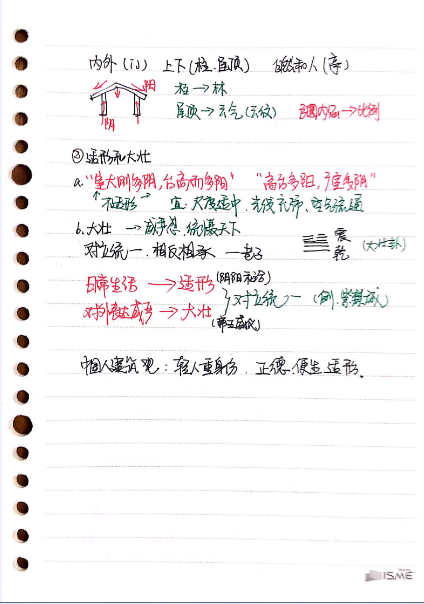 内外(门) 上下(柱.屋顶) 自然和人(亭)
阳
阴
柱→林
屋顶→云气(云纹)
范围内涵→比例
②适形和大壮
a."室大则多阴,台高而多阳" "高台多阳,广室多阴"
↑不适形→ 宜.尺度适中.光线充沛.空气流通
b.大壮 →威华慧.统摄天下
对立统一.相反相承 —老子
震
乾
(大壮卦)
日常生活 → 适形 (阴阳和合)
对外表达威严 → 大壮 (帝王威仪)
对立统一 (例.紫禁城)
中国人建筑观: 轻人重身份. 正德.便生.适形.
ISME